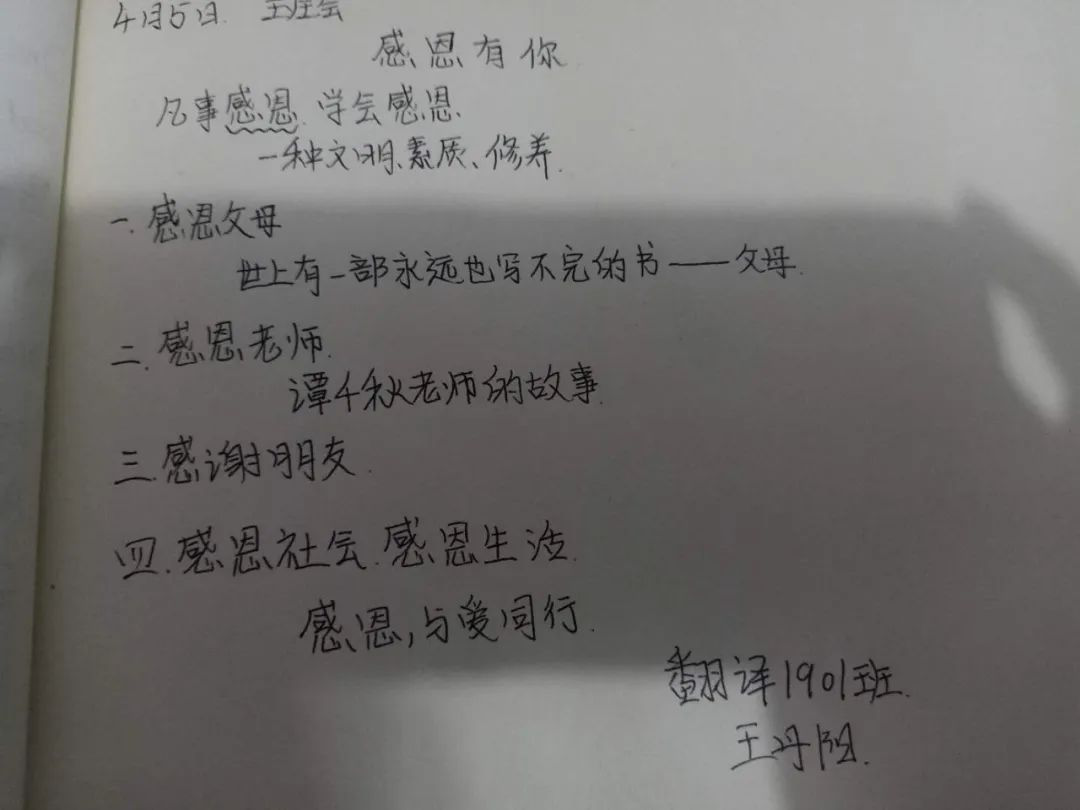 4月5日 主任会
感恩有你
凡事感恩.学会感恩.
一种文明、素质、修养.
一.感恩父母
世上有一部永远也写不完的书——父母.
二.感恩老师.
谭千秋老师的故事.
三.感谢朋友.
四.感恩社会.感恩生活.
感恩,与爱同行.
翻译1901班.
王丹阳.